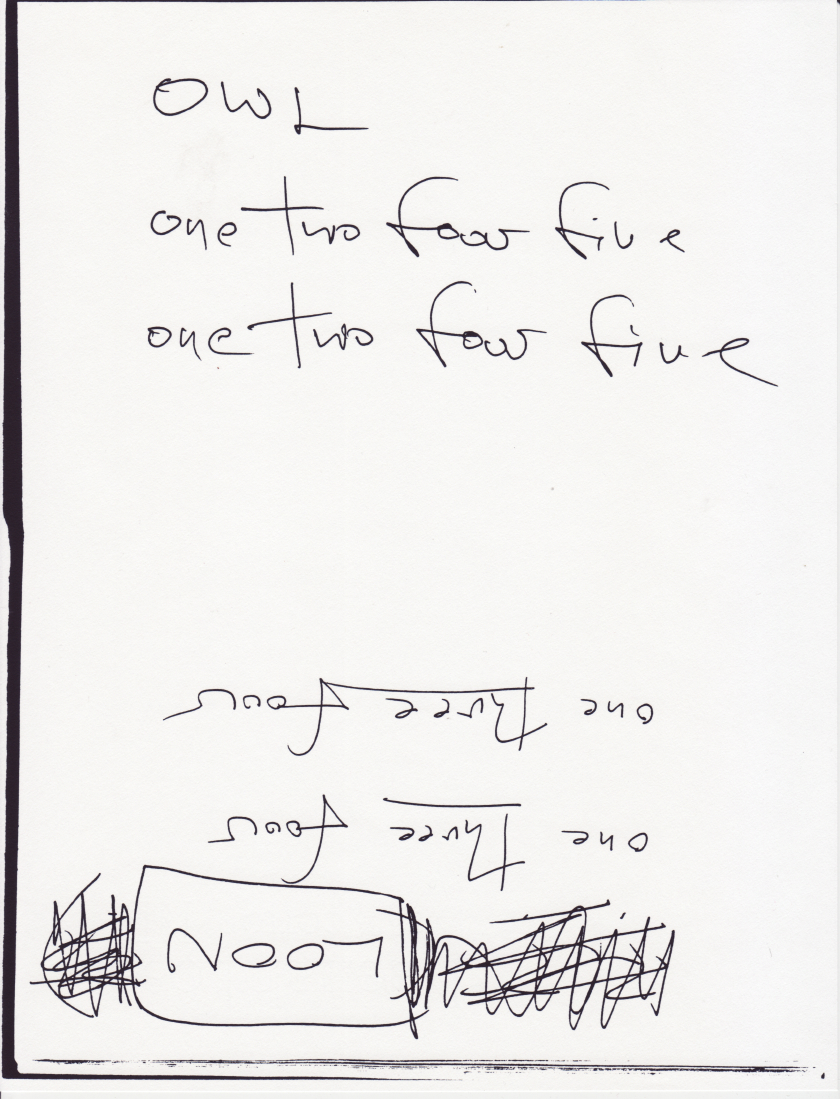 OWL
one two four five
one two four five
LOON
one three four
one three four